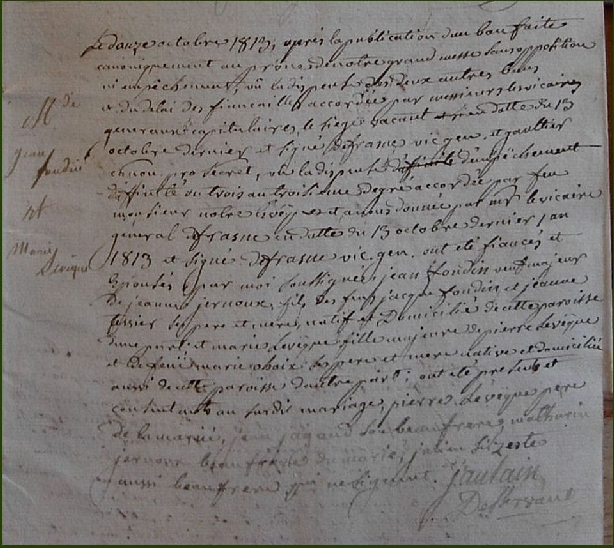 M. de
jean
foudin
et
marie
Levêque
Le douze octobre 1813, après la publication d'un ban faite
canoniquement au prône de notre grand messe sans opposition
ni empêchement, vû la dispense des deux autres bans
et du delai des fiancailles accordée par messieurs les vicaires
generaux capitulaires, le siege vacant en datte du 13
octobre dernier et signé defrasne vic. gen. et gaultier
chanoine pro secret, vû la dispense d'empêchement
du trois au troisieme degré accordée par feu
monsieur notre évêque et a nous donnée par mr le vicaire
general defrasne en datte du 13 octobre dernier, an
1813 et signé defrasne vic. gen. ont été fiancés et
épousés par moi soussigné, jean foudin veuf majeur
de jeanne jernoux, fils des feus jacque foudin et jeanne
tessier ses pere et mere, natif et domicilié de cette paroisse
d'une part: et marie Levêque fille majeure de pierre Levêque
et de feüe marie ses pere et mere native et domiciliée
aussi de cette paroisse d'autre part; ont été presents et
consentants au susdit mariage, pierre Levêque pere
de la mariée, jean son beaufrere, mathurin
jernoux beaufrere du marié, julien
aussi beaufrere qui ne signent.
jautain
Desservant